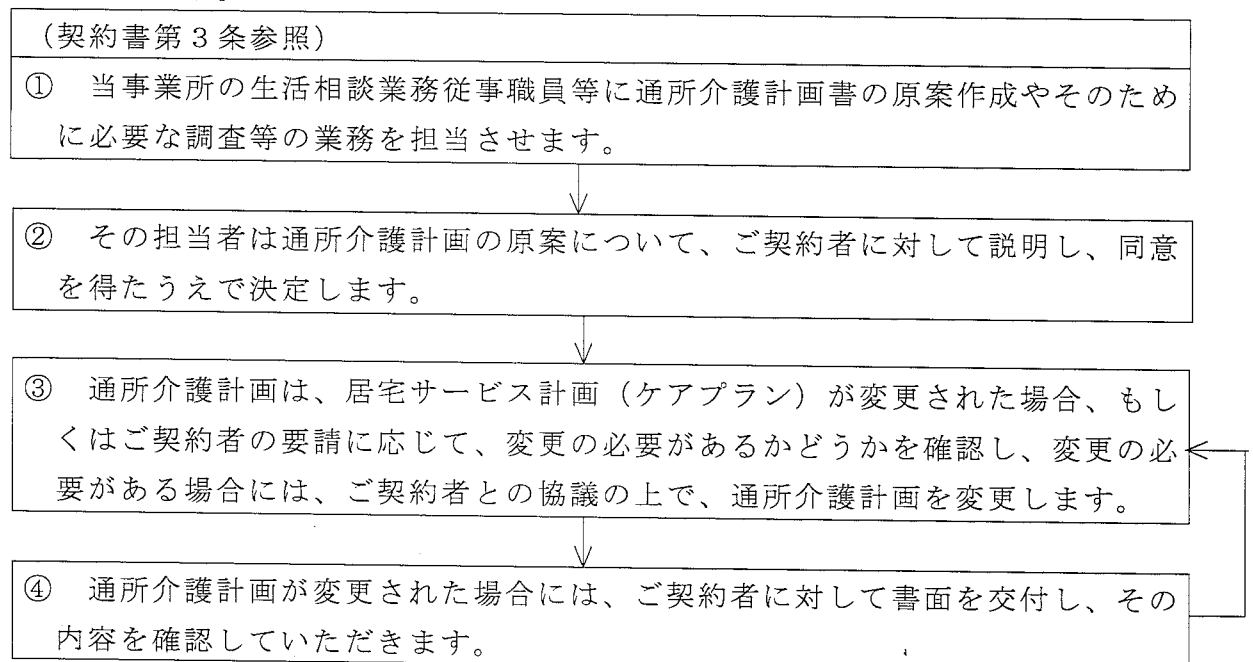 （契約書第３条参照）
①　当事業所の生活相談業務従事職員等に通所介護計画書の原案作成やそのため
に必要な調査等の業務を担当させます。
②　その担当者は通所介護計画の原案について、ご契約者に対して説明し、同意
を得たうえで決定します。
③　通所介護計画は、居宅サービス計画（ケアプラン）が変更された場合、もし
くはご契約者の要請に応じて、変更の必要があるかどうかを確認し、変更の必
要がある場合には、ご契約者との協議の上で、通所介護計画を変更します。
④　通所介護計画が変更された場合には、ご契約者に対して書面を交付し、その
内容を確認していただきます。